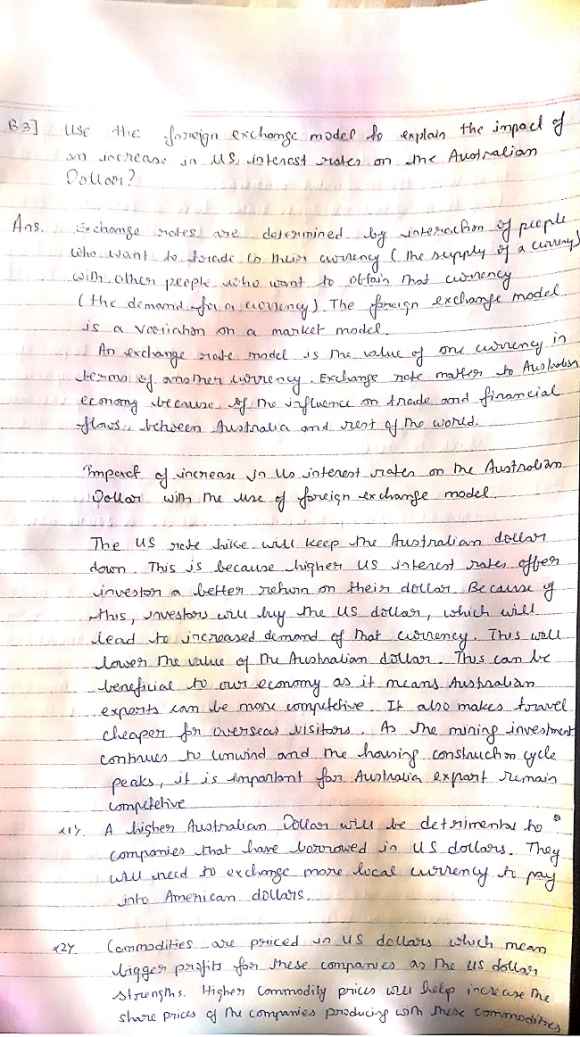 B3] Use the foreign exchange model to explain the impact of
an increase in US interest rates on the Australian
Dollar?
Ans. Exchange rates are determined by interaction of people
who want to trade in their currency (the supply of a currency)
with other people who want to obtain that currency
(the demand for a currency). The foreign exchange model
is a variation on a market model.
An exchange rate model is the value of one currency in
terms of another currency. Exchange rate matter to Australian
economy because of the influence on trade and financial
flows between Australia and rest of the world.
Impact of increase in Us interest rates on the Australian
Dollar with the use of foreign exchange model.
The US rate hike will keep the Australian dollar
down. This is because higher US interest rates offer
investor a better return on their dollar. Because of
this, investors will buy the US dollar, which will
lead to increased demand of that currency. This will
lower the value of the Australian dollar. This can be
beneficial to our economy as it means Australian
exports can be more competitive. It also makes travel
cheaper for overseas visitors. As the mining investment
continues to unwind and the housing construction cycle
peaks, it is important for Australia export remain
competetive
<1> A higher Australian Dollar will be detrimental to
companies that have borrowed in US dollars. They
will need to exchange more local currency to pay
into American dollars.
<2> Commodities are priced in US dollars which mean
bigger profits for these companies as the US dollar
strengths. Higher commodity prices will help increase the
share prices of the companies producing with these commodities